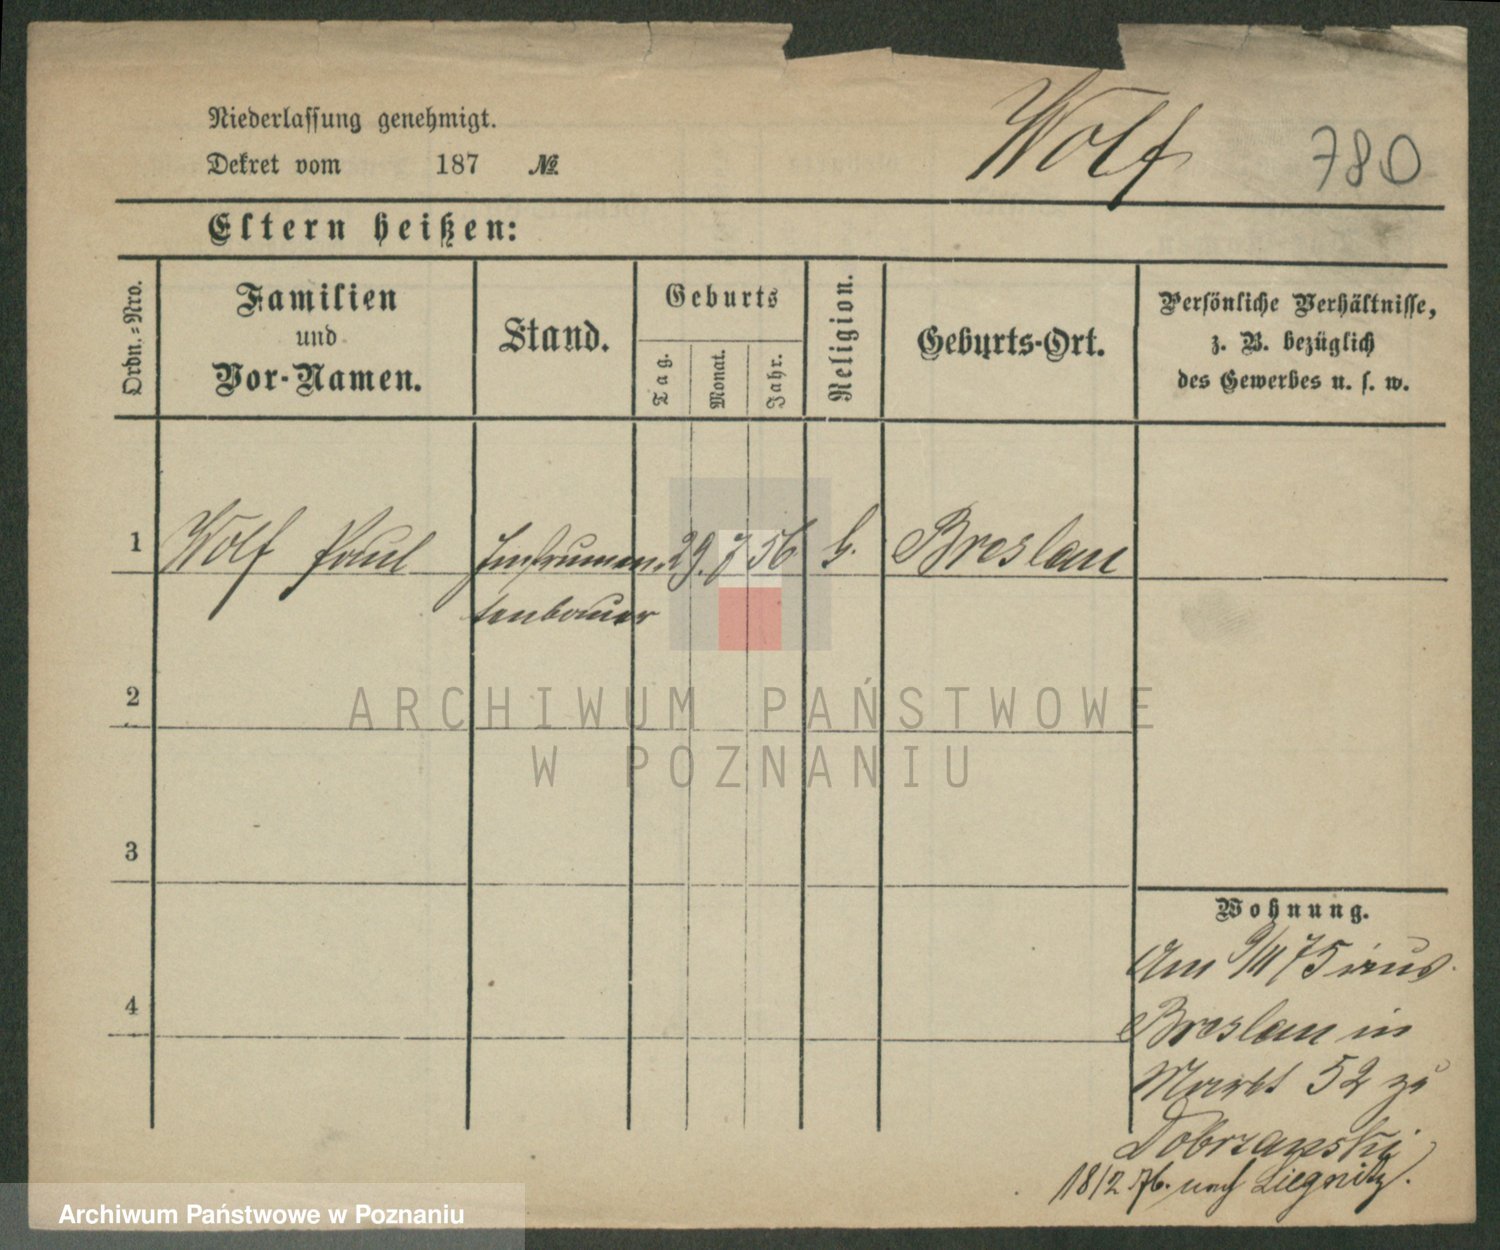 Niederlassung genehmigt.
Dekret vom 187 №
Wolf 780
Eltern heißen:
Ordn.=Nro.
Familien
und
Vor-Namen.
Stand.
Geburts
Tag.
Monat.
Jahr.
Religion.
Geburts-Ort.
Persönliche Verhältnisse,
z. B. bezüglich
des Gewerbes u. s. w.
1 Wolf Paul Instrumen- 29. 7 56 Breslau
tenbauer
2
ARCHIWUM PAŃSTWOWE
W POZNANIU
3
4
Wohnung.
Am 75 aus
Breslau in
Markt 52 zu
Dobrzanski
18/2.76. nach Liegnitz.
Archiwum Państwowe w Poznaniu